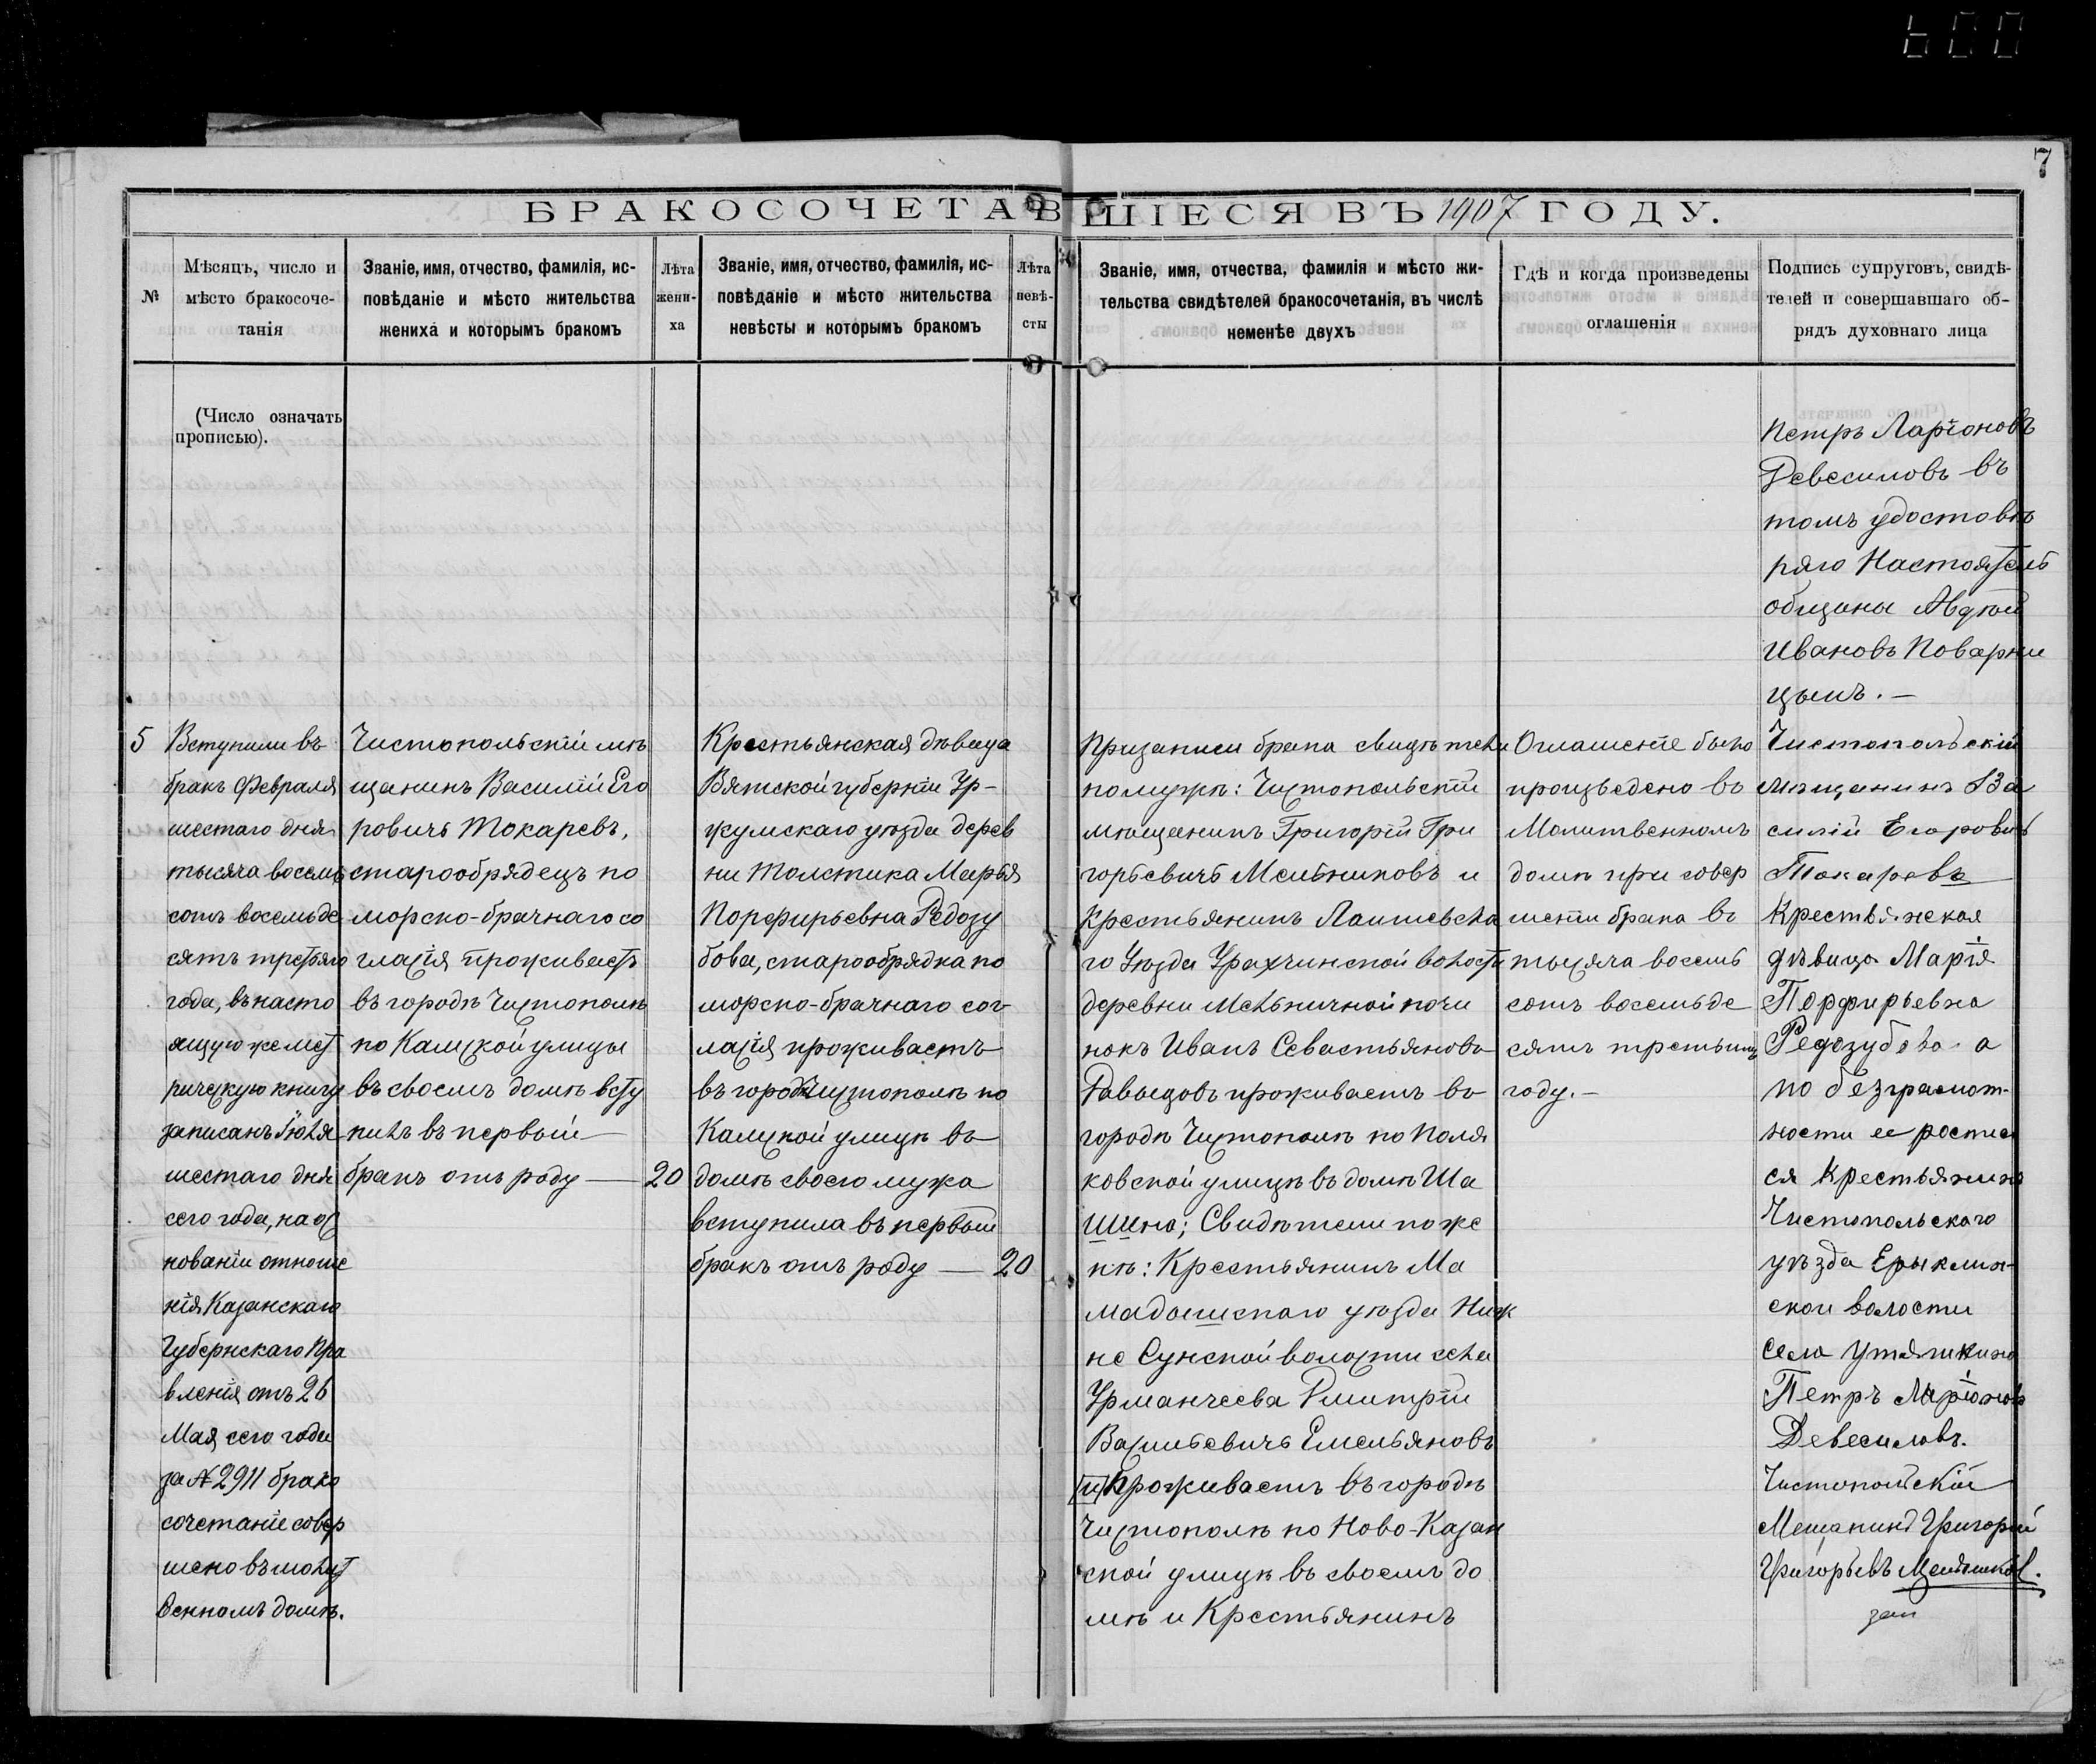 600
7
БРАКОСОЧЕТАВШІЕСЯ ВЪ 1907 ГОДУ.
№
Мѣсяцъ, число и
мѣсто бракосоче-
танія
Званіе, имя, отчество, фамилія, ис-
повѣданіе и мѣсто жительства
жениха и которымъ бракомъ
Лѣта
жени-
ха
Званіе, имя, отчество, фамилія, ис-
повѣданіе и мѣсто жительства
невѣсты и которымъ бракомъ
Лѣта
невѣ-
сты
Званіе, имя, отчества, фамилія и мѣсто жи-
тельства свидѣтелей бракосочетанія, въ числѣ
неменѣе двухъ
Гдѣ и когда произведены
оглашенія
Подпись супруговъ, свидѣ-
телей и совершавшаго об-
рядъ духовнаго лица
(Число означать
прописью).
Петръ Ларіоновъ
Девесиловъ въ
томъ удостовѣ
ряю Настоятель
общины Авдѣй
Ивановъ Поварни
цынъ. —
5
Вступили въ
бракъ Февраля
шестаго дня
тысяча восемь
сотъ восемьде
сятъ третьяго
года, въ насто
ящую же мет
рическую книгу
записанъ Іюля
шестаго дня
сего года, на ос
нованіи отноше
нія Казанскаго
Губернскаго Пра
вленія отъ 26
Мая сего года
за № 2911 брако
сочетаніе совер
шено въ молит
венномъ домѣ.
Чистопольскій мѣ
щанинъ Василій Его
ровичъ Токаревъ,
старообрядецъ по
морско-брачнаго со
гласія проживаетъ
въ городѣ Чистополѣ
по Камской улицы
въ своемъ домѣ всту
пилъ въ первый
бракъ отъ роду — 20
Крестьянская дѣвица
Вятской губерніи Ур-
жумскаго уѣзда дерев
ни Толстика Марья
Порфирьевна Редозу
бова, старообрядка по
морско-брачнаго сог-
ласія проживаетъ
въ городѣ Чистополѣ по
Камской улицѣ въ
домѣ своего мужа
вступила въ первый
бракъ отъ роду — 20
При записи брака свидѣтели
по мужѣ: Чистопольскій
мѣщанинъ Григорій Гри
горьевичъ Мельниковъ и
Крестьянинъ Лаишевска
го Уѣзда Урахчинской волости
деревни Мельничной почи
нокъ Иванъ Севастьяновъ
Давыдовъ проживаетъ въ
городѣ Чистополѣ по Поля
ковской улицѣ въ домѣ Ша
шина; Свидѣтели по же
нѣ: Крестьянинъ Ма
мадышскаго уѣзда Ниж
не Сунской волости села
Урманчеева Дмитрій
Васильевичъ Емельяновъ
(и) Проживаетъ въ городѣ
Чистополѣ по Ново-Казан
ской улицѣ въ своемъ до
мѣ и Крестьянинъ
Оглашеніе было
произведено въ
Молитвенномъ
домѣ при совер
шеніи брака въ
тысяча восемь
сотъ восемьде
сятъ третьимъ
году. —
Чистопольскій
мѣщанинъ Ва
силій Егоровичъ
Токаревъ
Крестьянская
дѣвица Марія
Порфирьевна
Редозубова а
по безграмот-
ности ее роспис
ся Крестьянинъ
Чистопольскаго
уѣзда Ерыклин-
ской волости
села Утяшкина
Петръ Ларіоновъ
Девесиловъ.
Чистопольскій
Мещанинъ Григорій
Григорьевъ Мельниковъ.